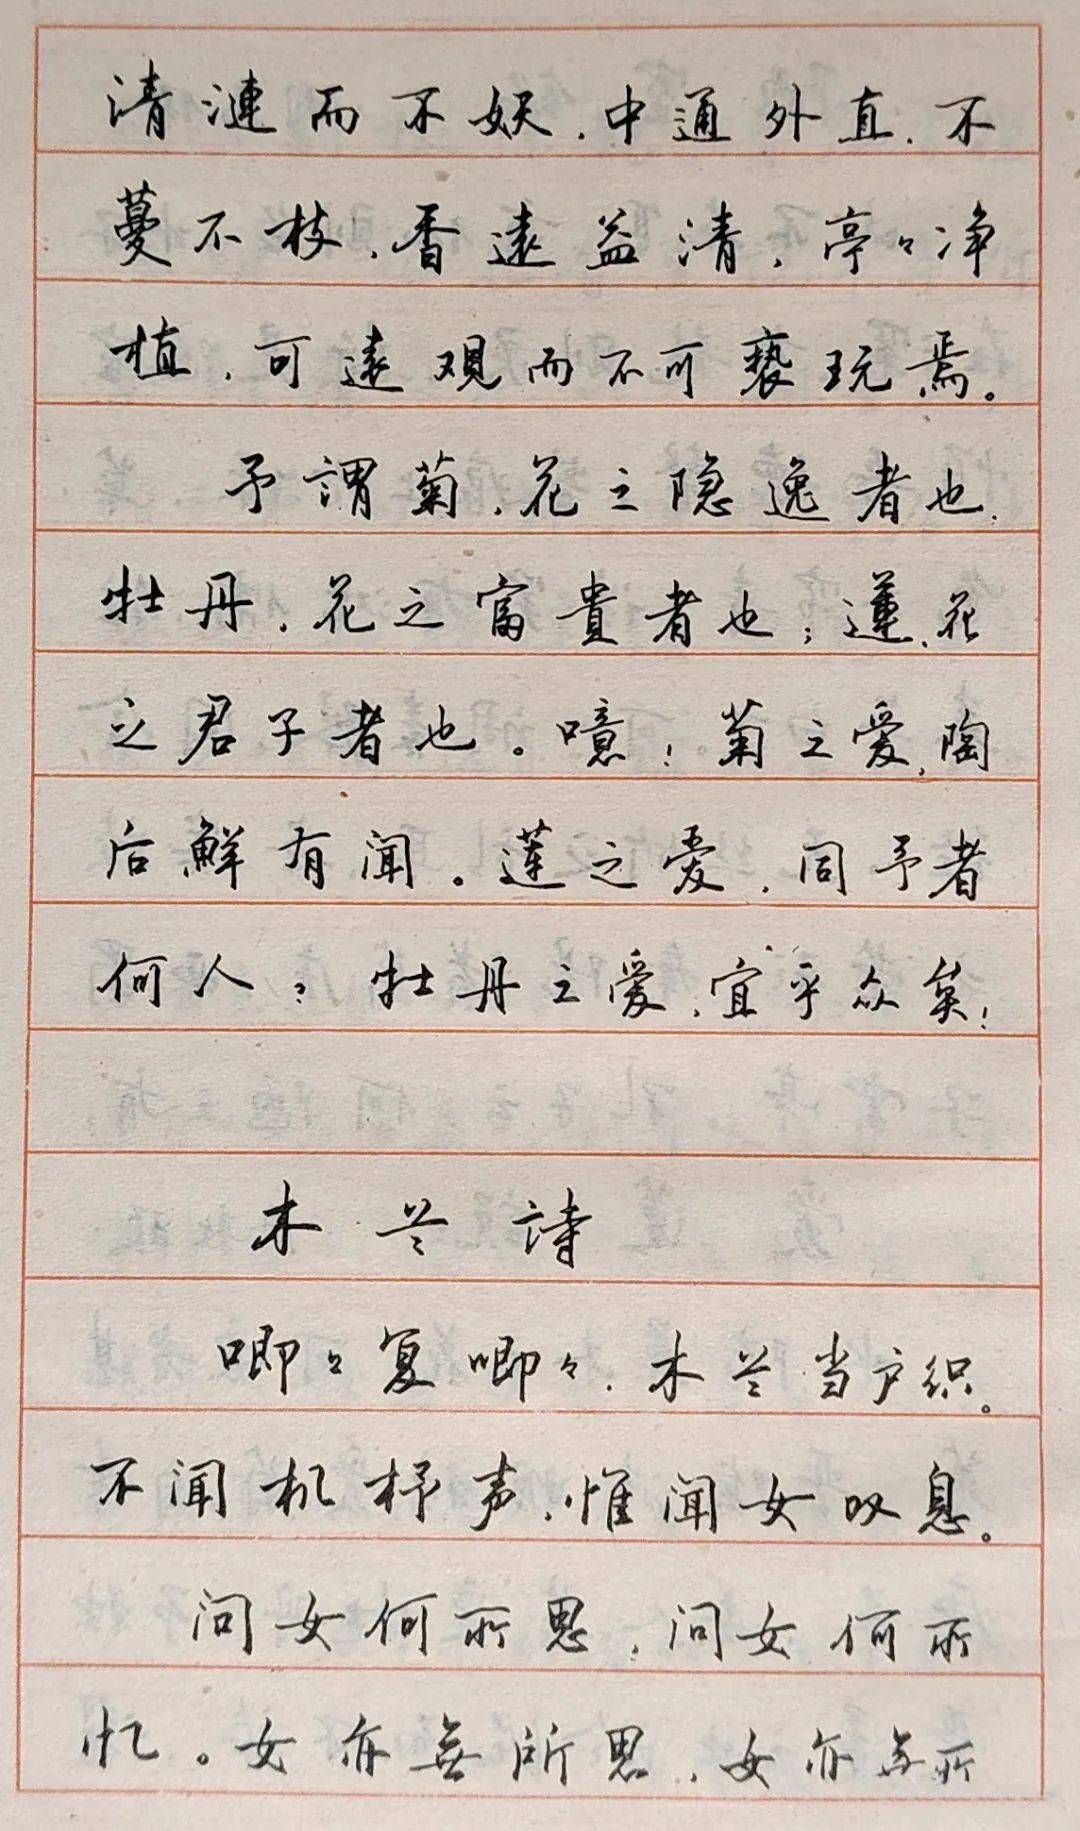 清漣而不妖，中通外直，不
蔓不枝，香遠益清，亭々净
植，可遠观而不可亵玩焉。
予謂菊，花之隐逸者也，
牡丹，花之富貴者也；蓮，花
之君子者也。噫！菊之爱，陶
后鮮有闻。莲之爱，同予者
何人？牡丹之爱，宜乎众矣！
木兰诗
唧々复唧々，木兰当户织。
不闻机杼声，惟闻女叹息。
问女何所思，问女何所
忆。女亦無所思，女亦无所